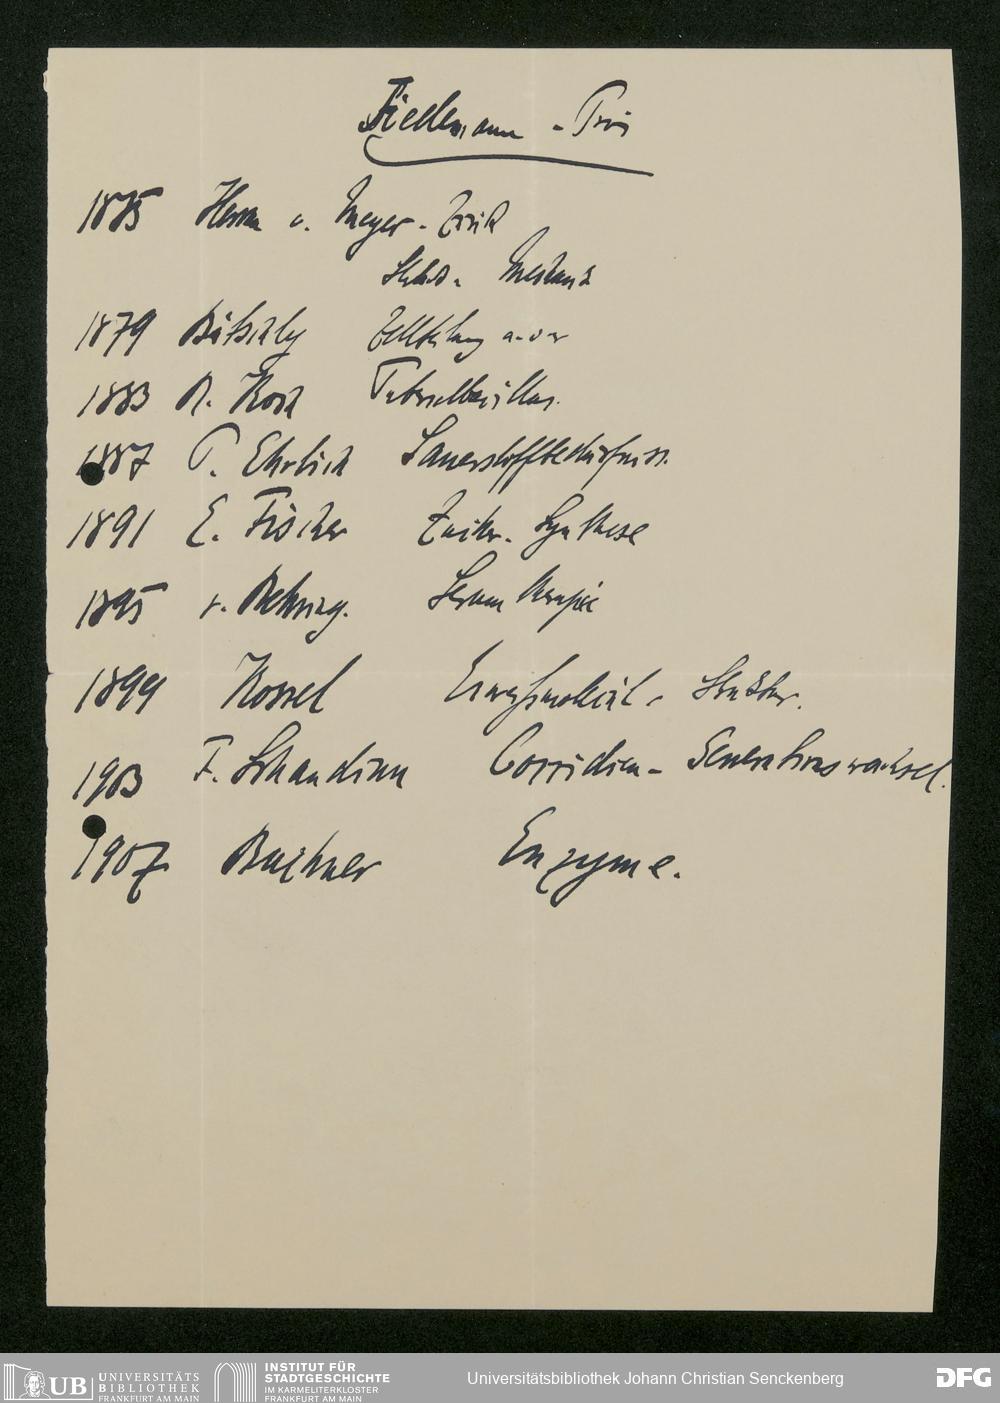 Tiedemann - Preis
1875 Herm v. Meyer - Zürich
Statik u. Mechanik
1879 Bütschly Zellteilung
1883 R. Koch Tuberkelbazillus.
1887 P. Ehrlich Sauerstoffbedürfniss.
1891 E. Fischer Zucker-Synthese
1895 v. Behring. Serumtherapie
1899 Kossel Eiweißmolekül - Struktur.
1903 F. Schaudinn Coccidien - Generationswechsel.
1907 Buchner Enzyme.
UB UNIVERSITÄTS
BIBLIOTHEK
FRANKFURT AM MAIN
INSTITUT FÜR
STADTGESCHICHTE
IM KARMELITERKLOSTER
FRANKFURT AM MAIN
Universitätsbibliothek Johann Christian Senckenberg
DFG